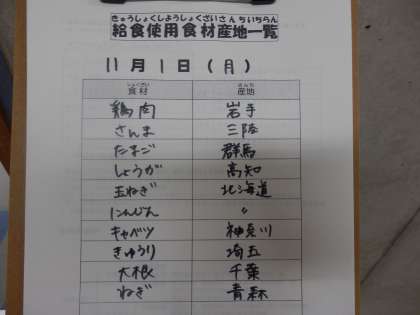 きゅうしょくしようしょくざいさんちいちらん
給食使用食材産地一覧
11月1日(月)
しょくざい さんち
食材 産地
鶏肉 岩手
さんま 三陸
たまご 群馬
しょうが 高知
玉ねぎ 北海道
にんじん 〃
キャベツ 神奈川
きゅうり 埼玉
大根 千葉
ねぎ 青森